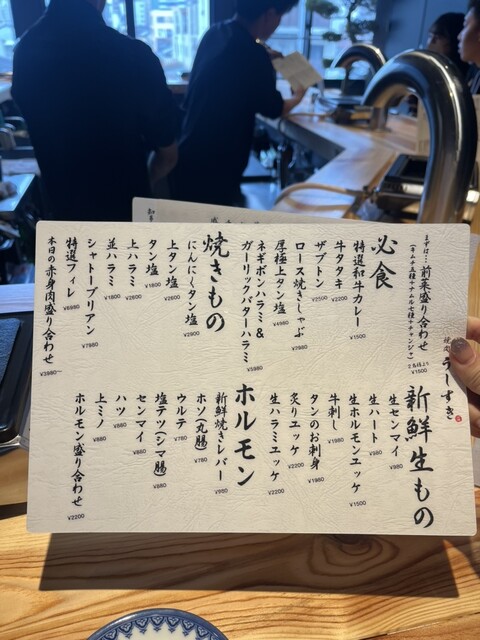 焼肉 うしすき
まずは…前菜盛り合わせ
(キムチ五種+ナムル七種+チャンジャ)
2名様より ¥1500
必食
特選和牛カレー ¥1500
牛タタキ ¥2200
ザブトン ¥2500
ロース焼きしゃぶ ¥7980
厚極上タン塩 ¥4980
ネギボンハラミ&
ガーリックバターハラミ ¥5980
焼きもの
にんにくタン塩 ¥2900
上タン塩 ¥2600
タン塩 ¥1600
上ハラミ ¥2600
並ハラミ ¥1800
シャトーブリアン ¥7980
特選フィレ ¥6980
本日の赤身肉盛り合わせ ¥3980〜
新鮮生もの
生センマイ ¥980
生ハート ¥980
生ホルモンユッケ ¥1500
牛刺し ¥1980
タンのお刺身 ¥1980
炙りユッケ ¥2200
生ハラミユッケ ¥2200
ホルモン
新鮮焼きレバー ¥980
ホソ(丸腸) ¥780
ウルテ ¥780
塩テツ(シマ腸) ¥880
センマイ ¥880
ハツ ¥880
上ミノ ¥880
ホルモン盛り合わせ ¥2200